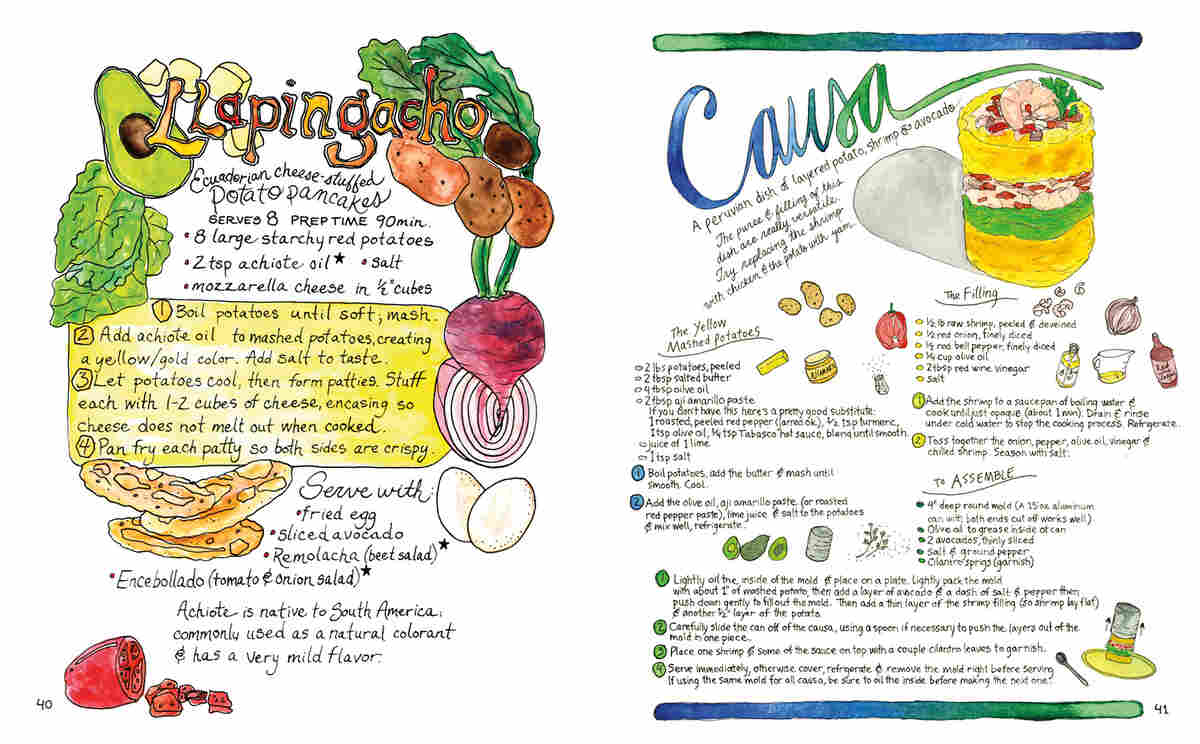 Llapingacho
Ecuadorian cheese-stuffed
Potato pancakes
SERVES 8 PREP TIME 90min.
• 8 large starchy red potatoes
• 2 tsp achiote oil★ • salt
• mozzarella cheese in ½" cubes
① Boil potatoes until soft; mash.
② Add achiote oil to mashed potatoes, creating
a yellow/gold color. Add salt to taste.
③ Let potatoes cool, then form patties. Stuff
each with 1-2 cubes of cheese, encasing so
cheese does not melt out when cooked.
④ Pan fry each patty so both sides are crispy.
Serve with:
• fried egg
• Sliced avocado
• Remolacha (beet salad)★
• Encebollado (tomato & onion salad)★
Achiote is native to South America;
commonly used as a natural colorant
& has a very mild flavor.
40
Causa
A peruvian dish of layered potato, shrimp & avocado
The puree & filling of this
dish are really versatile.
Try replacing the shrimp
with chicken & the potato with yam.
The Yellow
Mashed Potatoes
2 lbs potatoes, peeled
2 tbsp salted butter
4 tbsp olive oil
2 tbsp aji amarillo paste
If you don't have this here's a pretty good substitute:
1 roasted, peeled red pepper (jarred ok), ½ tsp turmeric,
1 tsp olive oil, ¼ tsp Tabasco hot sauce, blend until smooth.
juice of 1 lime
1 tsp salt
1 Boil potatoes, add the butter & mash until
smooth. Cool.
2 Add the olive oil, aji amarillo paste, (or roasted
red pepper paste), lime juice & salt to the potatoes
& mix well, refrigerate.
The Filling
½ lb raw shrimp, peeled & deveined
½ red onion, finely diced
½ red bell pepper, finely diced
¼ cup olive oil
2 tbsp red wine vinegar
Salt
1 Add the shrimp to a saucepan of boiling water &
cook until just opaque (about 1 min). Drain & rinse
under cold water to stop the cooking process. Refrigerate.
2 Toss together the onion, pepper, olive oil, vinegar &
chilled shrimp. Season with salt.
To ASSEMBLE
4" deep round mold (A 15 oz aluminum
can with both ends cut off works well)
Olive oil to grease inside of can
2 avocados, thinly sliced
Salt & ground pepper
Cilantro sprigs (garnish)
1 Lightly oil the, inside of the mold & place on a plate. Lightly pack the mold
with about 1" of mashed potato, then add a layer of avocado & a dash of salt & pepper then
push down gently to fill out the mold. Then add a thin layer of the shrimp filling (so shrimp lay flat)
& another ½" layer of the potato.
2 Carefully slide the can off of the causa, using a spoon if necessary to push the layers out of the
mold in one piece.
3 Place one shrimp & some of the sauce on top with a couple cilantro leaves to garnish.
4 Serve immediately, otherwise cover, refrigerate & remove the mold right before serving
If using the same mold for all causa, be sure to oil the inside before making the next one!
41